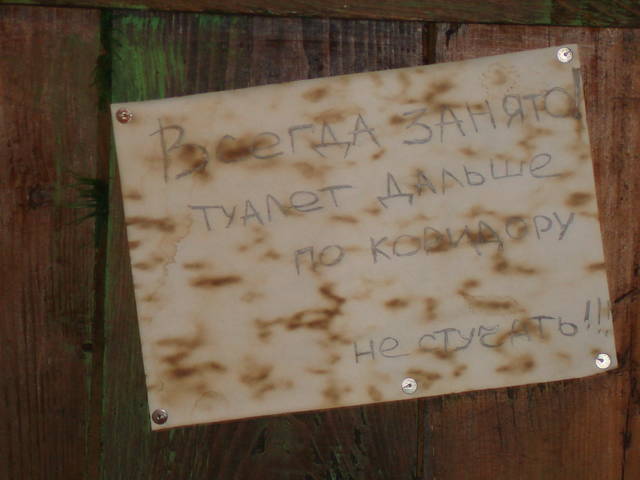 Всегда занято!
туалет дальше
по коридору
не стучать!!!